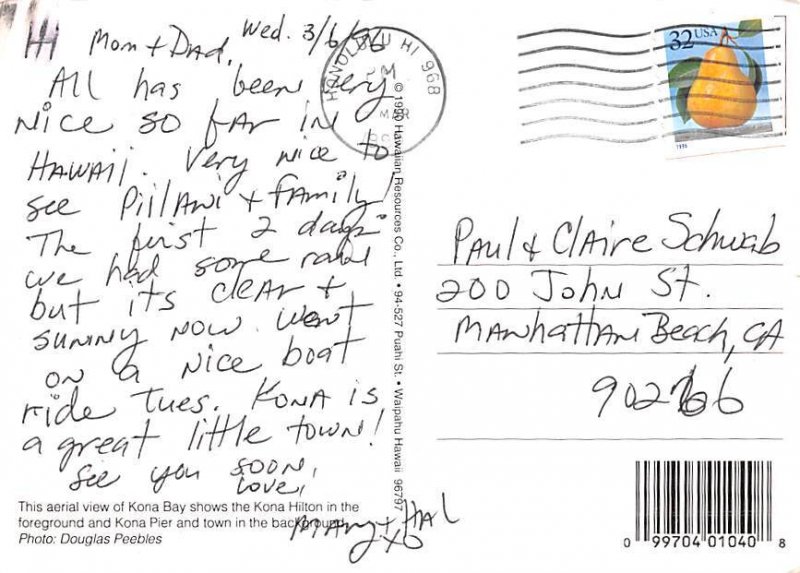 Hi Mom + Dad, Wed. 3/6/96
All has been very
nice so far in
Hawaii. Very nice to
see Piilani + family!
The first 2 days
we had some rain
but its clear +
sunny now. Went
on a nice boat
ride Tues. Kona is
a great little town!
See you soon,
Love,
Mary + Hal
XO
This aerial view of Kona Bay shows the Kona Hilton in the
foreground and Kona Pier and town in the background.
Photo: Douglas Peebles
© 1990 Hawaiian Resources Co., Ltd. • 94-527 Puahi St. • Waipahu Hawaii 96797
HONOLULU HI 968
PM
MAR
32 USA
1995
Paul & Claire Schwab
200 John St.
Manhattan Beach, CA
90266
0 99704 01040 8